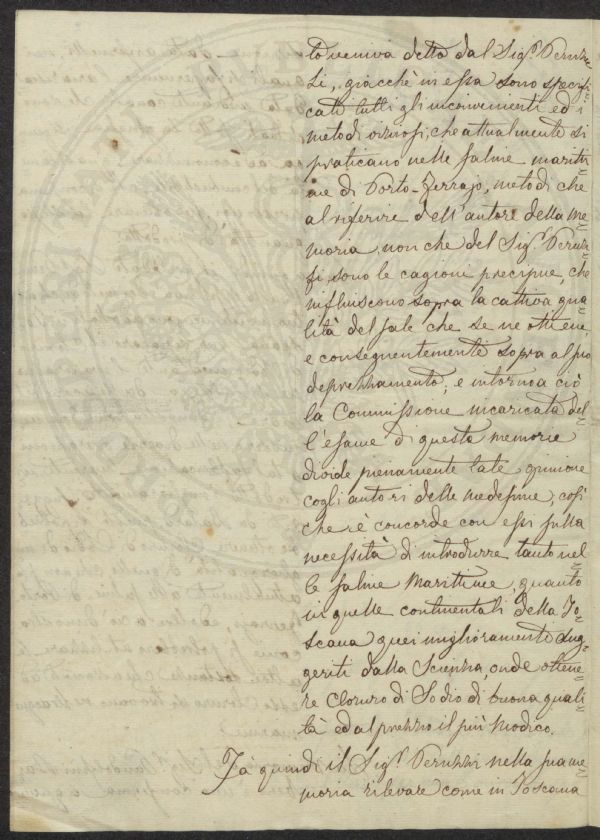 to veniva detto dal Sig.r Peruz=
zi, giacchè in essa sono specifi
cati tutti gli inconvenienti ed i
metodi viziosi, che attualmente si
praticano nelle saline maritti
me di Porto-Ferrajo, metodi che
al riferire dell'autore della me=
moria, non che del Sig.r Peruz=
zi, sono le cagioni precipue, che
influiscono sopra la cattiva qua=
lità del sale che se ne ottiene,
e conseguentemente sopra al suo
deprezzamento, e intorno a ciò
la Commissione incaricata del=
l'esame di queste memorie
divide pienamente tale opinione
cogli autori delle medesime, così
che si è concorde con essi sulla
necessità di introdurre tanto nel
le saline Marittime, quanto
in quelle continentali della To=
scana quei miglioramenti sug=
geriti dalla Scienza, onde ottene=
re Cloruro di Sodio di buona quali=
tà ed al prezzo il più modico.
Fa quindi il Sig.r Peruzzi nella sua me=
moria rilevare come in Toscana